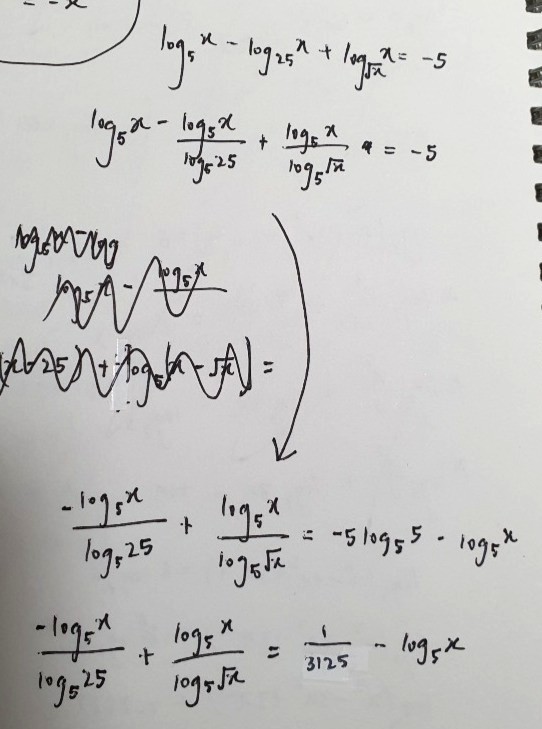 = -x
log₅x - log₂₅x + log_√x x = -5
log₅x - log₅x/log₅25 + log₅x/log₅√x = -5
log₅x - log
log₅x - log₅x
x - 25) + log₅(x - √x) =
-log₅x/log₅25 + log₅x/log₅√x = -5 log₅5 - log₅x
-log₅x/log₅25 + log₅x/log₅√x = 1/3125 - log₅x